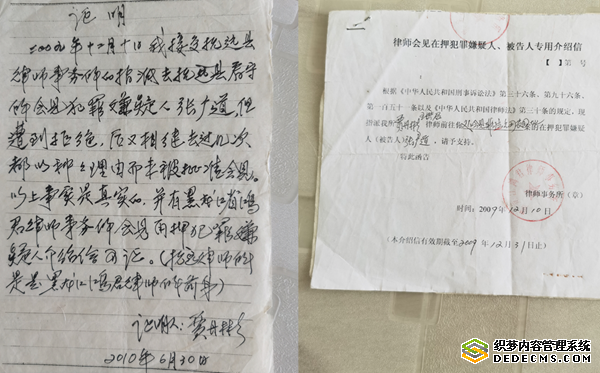 证明
2009年12月10日我接受抚远县
律师事务所的指派去抚远县看守
所会见犯罪嫌疑人张广道,但
遭到拒绝,后又相继去过几次
都以种种理由而未被批准会见。
以上事实是真实的,并有黑龙江省鸿
君律师事务所会见在押犯罪嫌
疑人介绍信可证。(抚远律师所
是黑龙江鸿君律师所前身)
证明人:
2010年6月30日
律师会见在押犯罪嫌疑人、被告人专用介绍信
【】第 号
根据《中华人民共和国刑事诉讼法》第三十六条、第九十六条、
第一百五十一条以及《中华人民共和国律师法》第三十条的规定,现
指派我所 律师前往你 在押犯罪嫌
疑人(被告人)张广道,请予支持。
特此函告
律师事务所(章)
时间:2009年12月10日
(本介绍信有效期截至2009年12月31日止)
织梦内容管理系统
DEDECMS.com